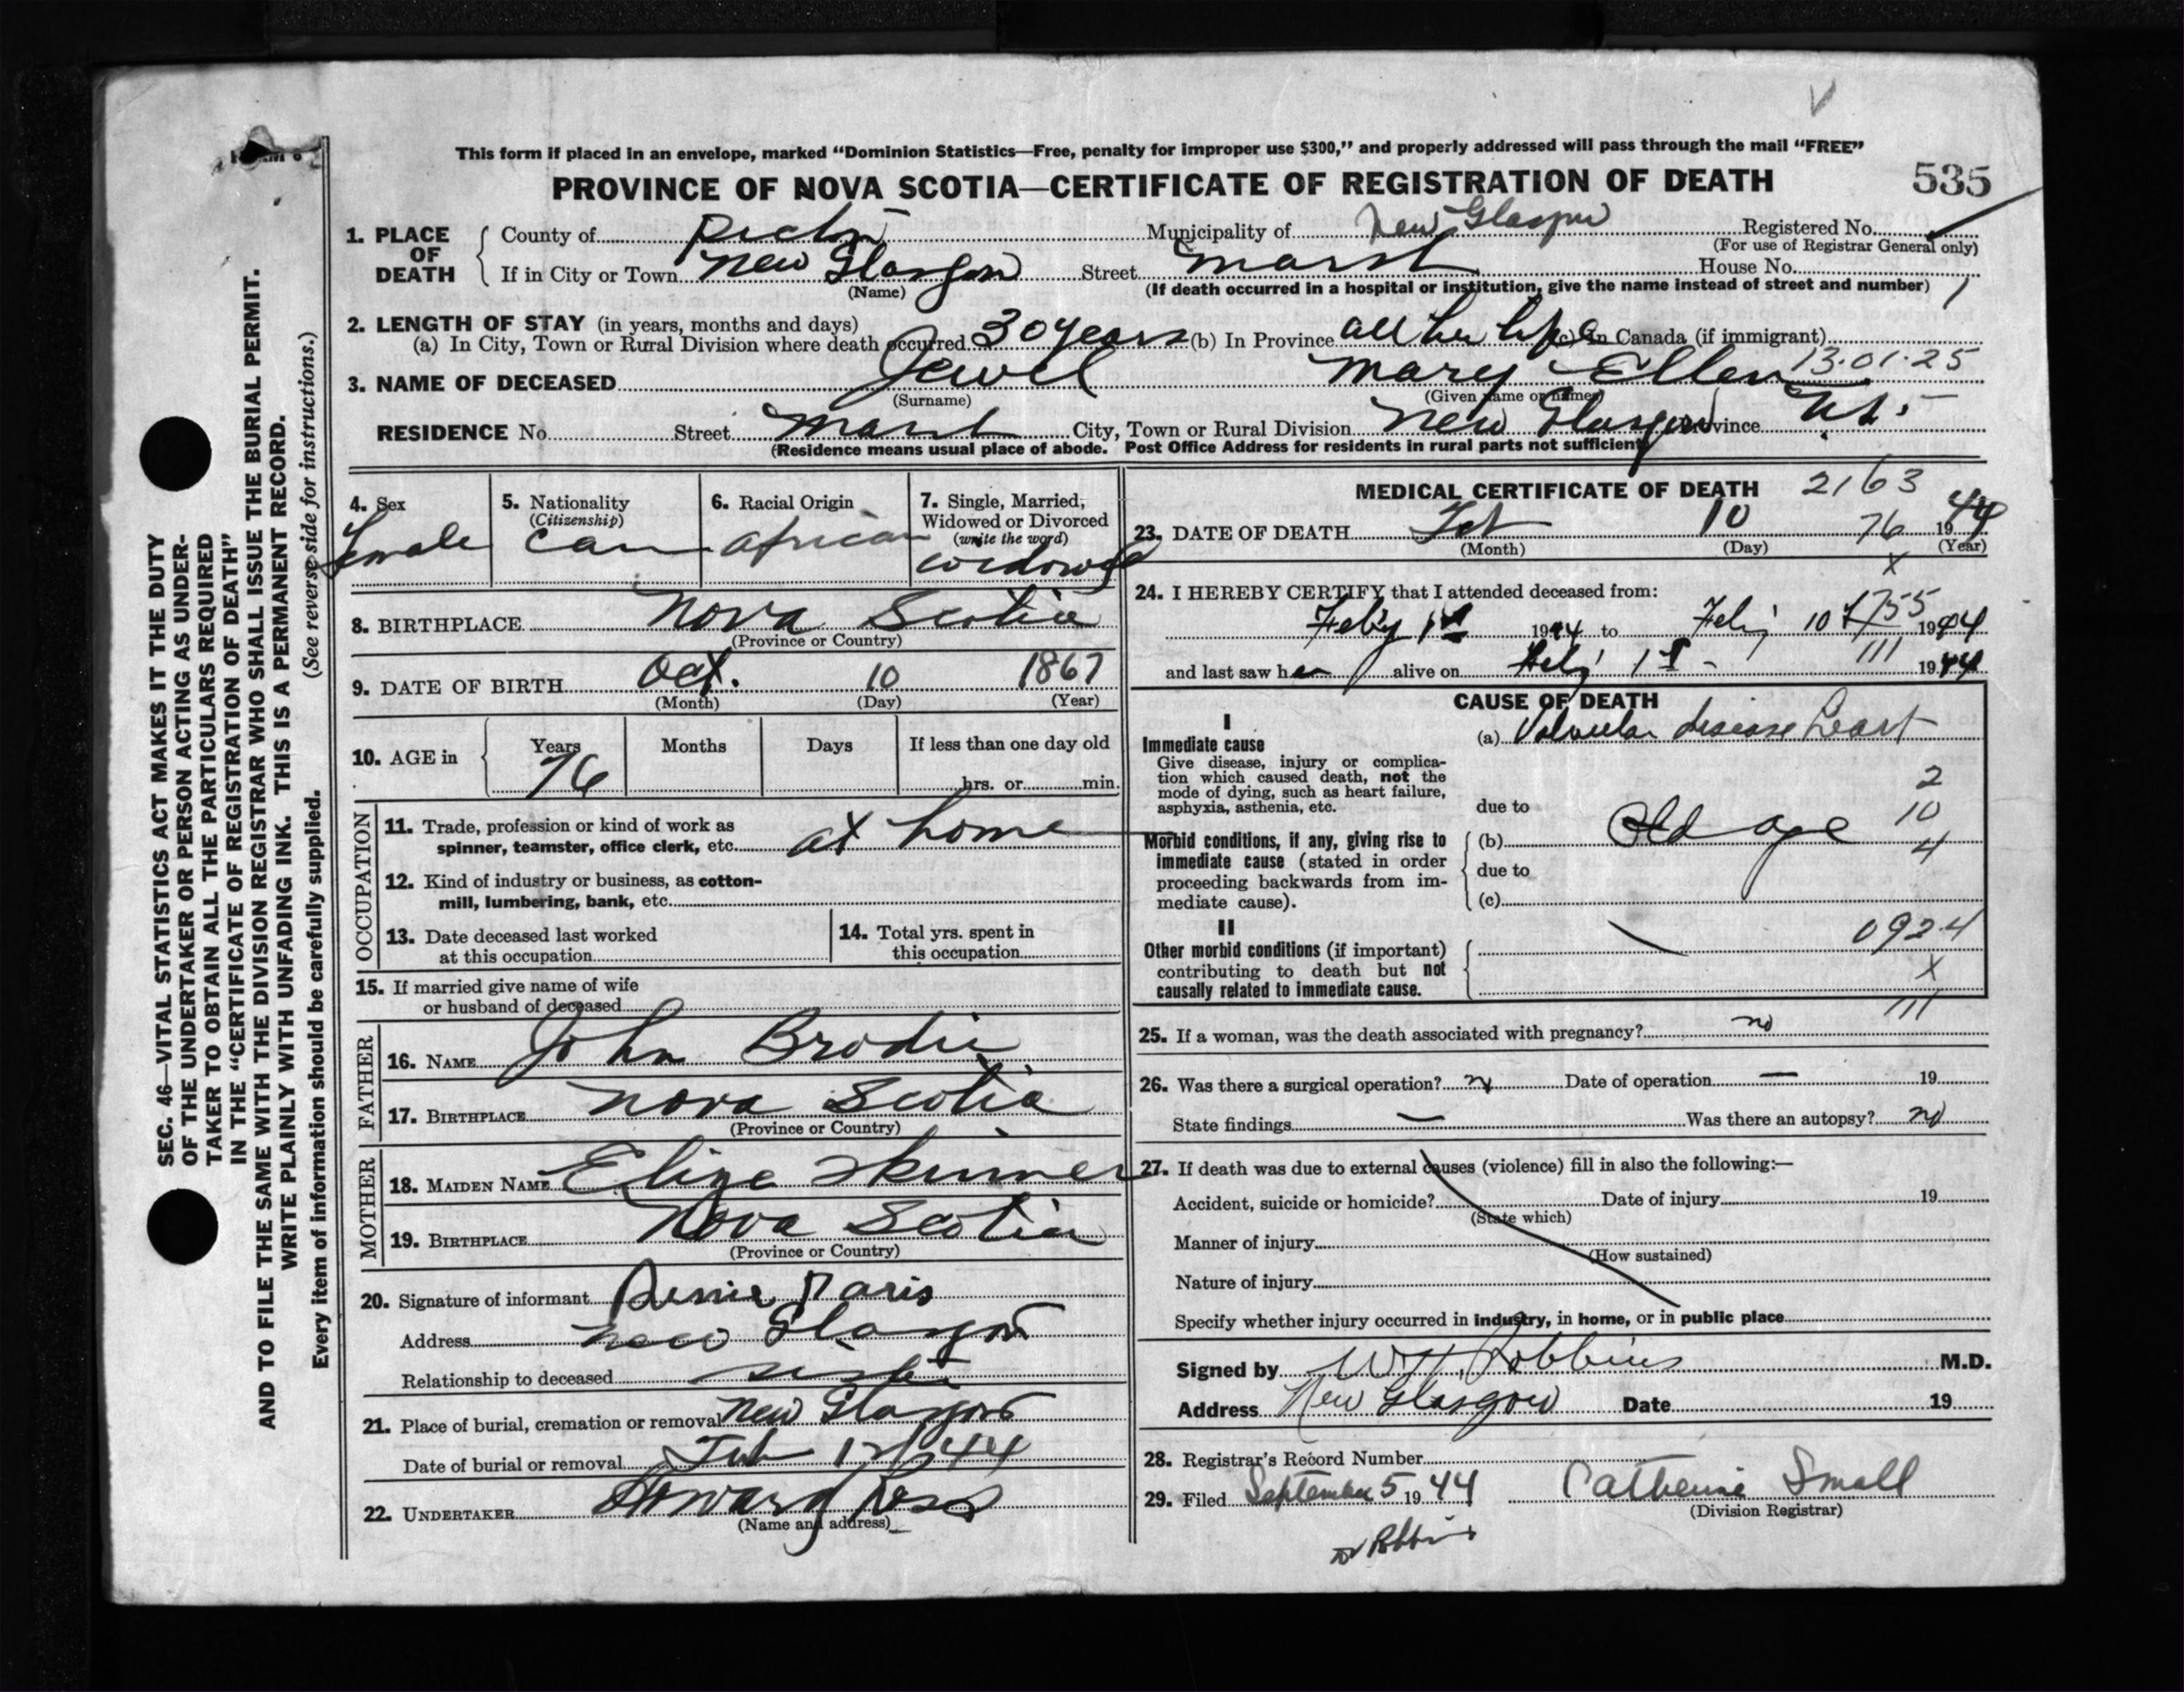 This form if placed in an envelope, marked "Dominion Statistics—Free, penalty for improper use $300," and properly addressed will pass through the mail "FREE"
PROVINCE OF NOVA SCOTIA—CERTIFICATE OF REGISTRATION OF DEATH 535
1. PLACE OF DEATH
County of Pictou Municipality of New Glasgow Registered No.
(For use of Registrar General only)
If in City or Town New Glasgow Street Marsh House No.
(Name) (If death occurred in a hospital or institution, give the name instead of street and number) 1
2. LENGTH OF STAY (in years, months and days)
(a) In City, Town or Rural Division where death occurred 30 years (b) In Province all her life (c) In Canada (if immigrant)
13.01.25
3. NAME OF DECEASED Jewel Mary Ellen
(Surname) (Given name or names)
RESIDENCE No. Street Marsh City, Town or Rural Division New Glasgow Province N.S.
(Residence means usual place of abode. Post Office Address for residents in rural parts not sufficient)
4. Sex Female
5. Nationality (Citizenship) Can
6. Racial Origin African
7. Single, Married, Widowed or Divorced (write the word) widowed
8. BIRTHPLACE Nova Scotia
(Province or Country)
9. DATE OF BIRTH Oct. 10 1867
(Month) (Day) (Year)
10. AGE in Years Months Days If less than one day old
76 hrs. or min.
OCCUPATION
11. Trade, profession or kind of work as
spinner, teamster, office clerk, etc. at home
12. Kind of industry or business, as cotton-
mill, lumbering, bank, etc.
13. Date deceased last worked
at this occupation
14. Total yrs. spent in
this occupation
15. If married give name of wife
or husband of deceased
FATHER
16. NAME John Brodie
17. BIRTHPLACE Nova Scotia
(Province or Country)
MOTHER
18. MAIDEN NAME Eliza Skinner
19. BIRTHPLACE Nova Scotia
(Province or Country)
20. Signature of informant Paris
Address New Glasgow
Relationship to deceased sister
21. Place of burial, cremation or removal New Glasgow
Date of burial or removal Feb 12/44
22. UNDERTAKER Howard Ross
(Name and address)
MEDICAL CERTIFICATE OF DEATH 2163
23. DATE OF DEATH Feb 10 76 1944
(Month) (Day) (Year)
X
24. I HEREBY CERTIFY that I attended deceased from:
Feby 1st 1944 to Feby 10 1944
755
and last saw her alive on Feby 1st 1944
111
CAUSE OF DEATH
I
Immediate cause
Give disease, injury or complica-
tion which caused death, not the
mode of dying, such as heart failure,
asphyxia, asthenia, etc.
(a) Valvular disease heart
due to
Morbid conditions, if any, giving rise to
immediate cause (stated in order
proceeding backwards from im-
mediate cause).
(b) Old age
due to
(c)
2
10
4
II
Other morbid conditions (if important)
contributing to death but not
causally related to immediate cause.
092.4
X
111
25. If a woman, was the death associated with pregnancy? no
26. Was there a surgical operation? n Date of operation — 19
State findings — Was there an autopsy? no
27. If death was due to external causes (violence) fill in also the following:—
Accident, suicide or homicide? Date of injury 19
(State which)
Manner of injury
(How sustained)
Nature of injury
Specify whether injury occurred in industry, in home, or in public place
Signed by W H Robbins M.D.
Address New Glasgow Date 19
28. Registrar's Record Number
29. Filed September 5 1944 Catherine Small
(Division Registrar)
Dr Robbins
SEC. 46—VITAL STATISTICS ACT MAKES IT THE DUTY
OF THE UNDERTAKER OR PERSON ACTING AS UNDER-
TAKER TO OBTAIN ALL THE PARTICULARS REQUIRED
IN THE "CERTIFICATE OF REGISTRATION OF DEATH"
AND TO FILE THE SAME WITH THE DIVISION REGISTRAR WHO SHALL ISSUE THE BURIAL PERMIT.
WRITE PLAINLY WITH UNFADING INK. THIS IS A PERMANENT RECORD.
Every item of information should be carefully supplied. (See reverse side for instructions.)